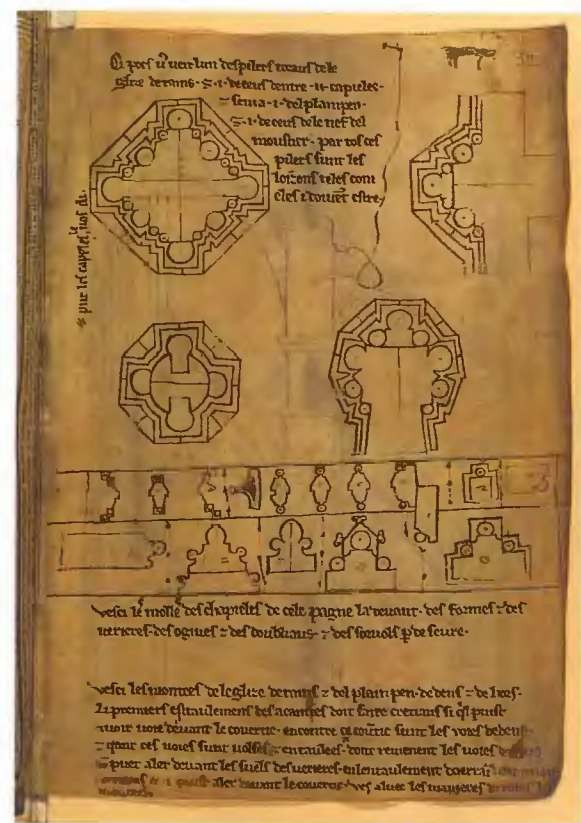 Ci poes vᵒ veir lun des pilers toraus de le
glize de rains · ⁊ · i · de ceus dentre · ii · capieles ·
⁊ sen i a · i · del plain pen ·
⁊ · i · de ceus de le nef del
moustier · par tos ces
pilers sunt les
loizons teles com
eles i doivēt estre ·
vesci le molle des chapieles de cele pagne la devant · des formes ⁊ des
verieres · des ogives ⁊ des doubliaus · ⁊ des sorvols p̄ de seure ·
vesci les montees de leglize de rains ⁊ del plain pen · dedens ⁊ de hors ·
Li premiers estaulemens des acaintes doit faire cretiaus si qil puist
avoir voie devant le covertic · encontre ce covertic sunt les voies dedens
⁊ qant ces voies sunt volses ⁊ entaulees · dont revienent les voies
cō puet aler devant les suels des verieres · en lentaulement daerrai
cō puist aler devant le covertic · ves aluec les manieres